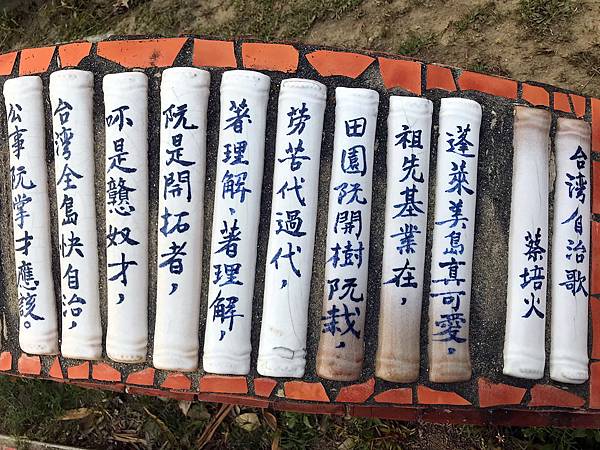 台湾自治歌
蔡培火
蓬萊美島真可愛，
祖先基業在，
田園阮開樹阮栽，
勞苦代過代，
著理解、著理解，
阮是開拓者，
呣是戇奴才，
台灣全島快自治，
公事阮掌才應該。